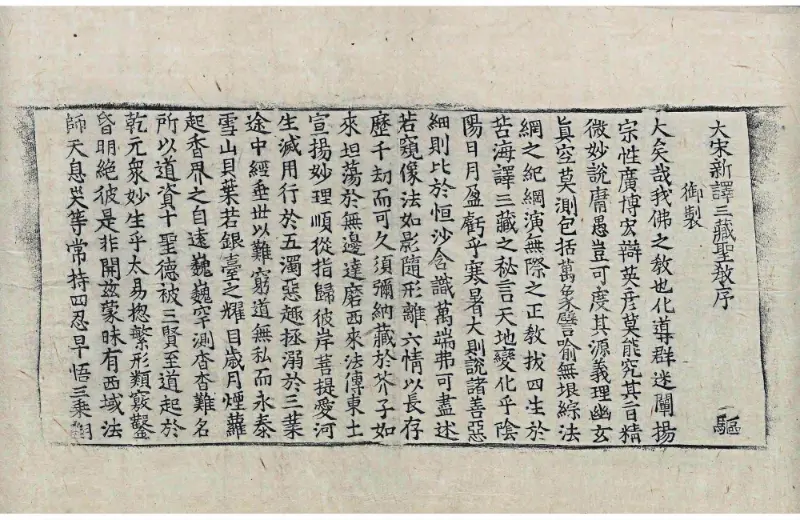 大宋新譯三藏聖教序
驅
御製
大矣哉我佛之教也化導群迷闡揚
宗性廣博宏辯英彥莫能究其旨精
微妙說庸愚豈可度其源義理幽玄
真空莫測包括萬象譬喻無垠綜法
網之紀綱演無際之正教拔四生於
苦海譯三藏之秘言天地變化乎陰
陽日月盈虧乎寒暑大則說諸善惡
細則比於恒沙含識萬端弗可盡述
若窺像法如影隨形離六情以長存
歷千劫而可久須彌納藏於芥子如
來坦蕩於無邊達磨西來法傳東土
宣揚妙理順從指歸彼岸菩提愛河
生滅用行於五濁惡趣拯溺於三業
途中經垂世以難窮道無私而永泰
雪山貝葉若銀臺之耀目歲月煙蘿
起香界之自遠巍巍罕測杳杳難名
所以道資十聖德被三賢至道起於
乾元眾妙生乎太易揔繁形類竅鑿
昏明絕彼是非開茲蒙昧有西域法
師天息災等常持四忍早悟三乘翻